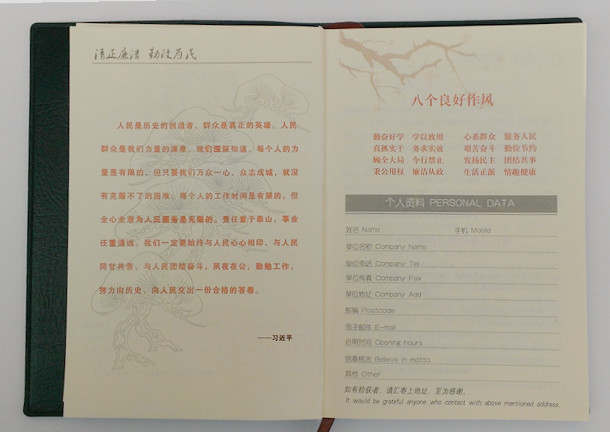 清正廉洁 勤政为民
人民是历史的创造者，群众是真正的英雄。人民
群众是我们力量的源泉。我们深深知道，每个人的力
量是有限的，但只要我们万众一心，众志成城，就没
有克服不了的困难；每个人的工作时间是有限的，但
全心全意为人民服务是无限的。责任重于泰山，事业
任重道远。我们一定要始终与人民心心相印、与人民
同甘共苦、与人民团结奋斗，夙夜在公，勤勉工作，
努力向历史、向人民交出一份合格的答卷。
——习近平
八个良好作风
勤奋好学 学以致用 心系群众 服务人民
真抓实干 务求实效 艰苦奋斗 勤俭节约
顾全大局 令行禁止 发扬民主 团结共事
秉公用权 廉洁从政 生活正派 情趣健康
个人资料 PERSONAL DATA
姓名 Name 手机 Mobile
单位名称 Company Name
单位电话 Company Tel
单位传真 Company Fax
单位地址 Company Add
邮编 Postcode
电子邮箱 E-mail
办公时间 Opening hours
信奉格言 Believe in motto
其他 Other
如有拾获者，请汇寄上地址，至为感谢。
It would be grateful anyone who contact with above mentioned address.